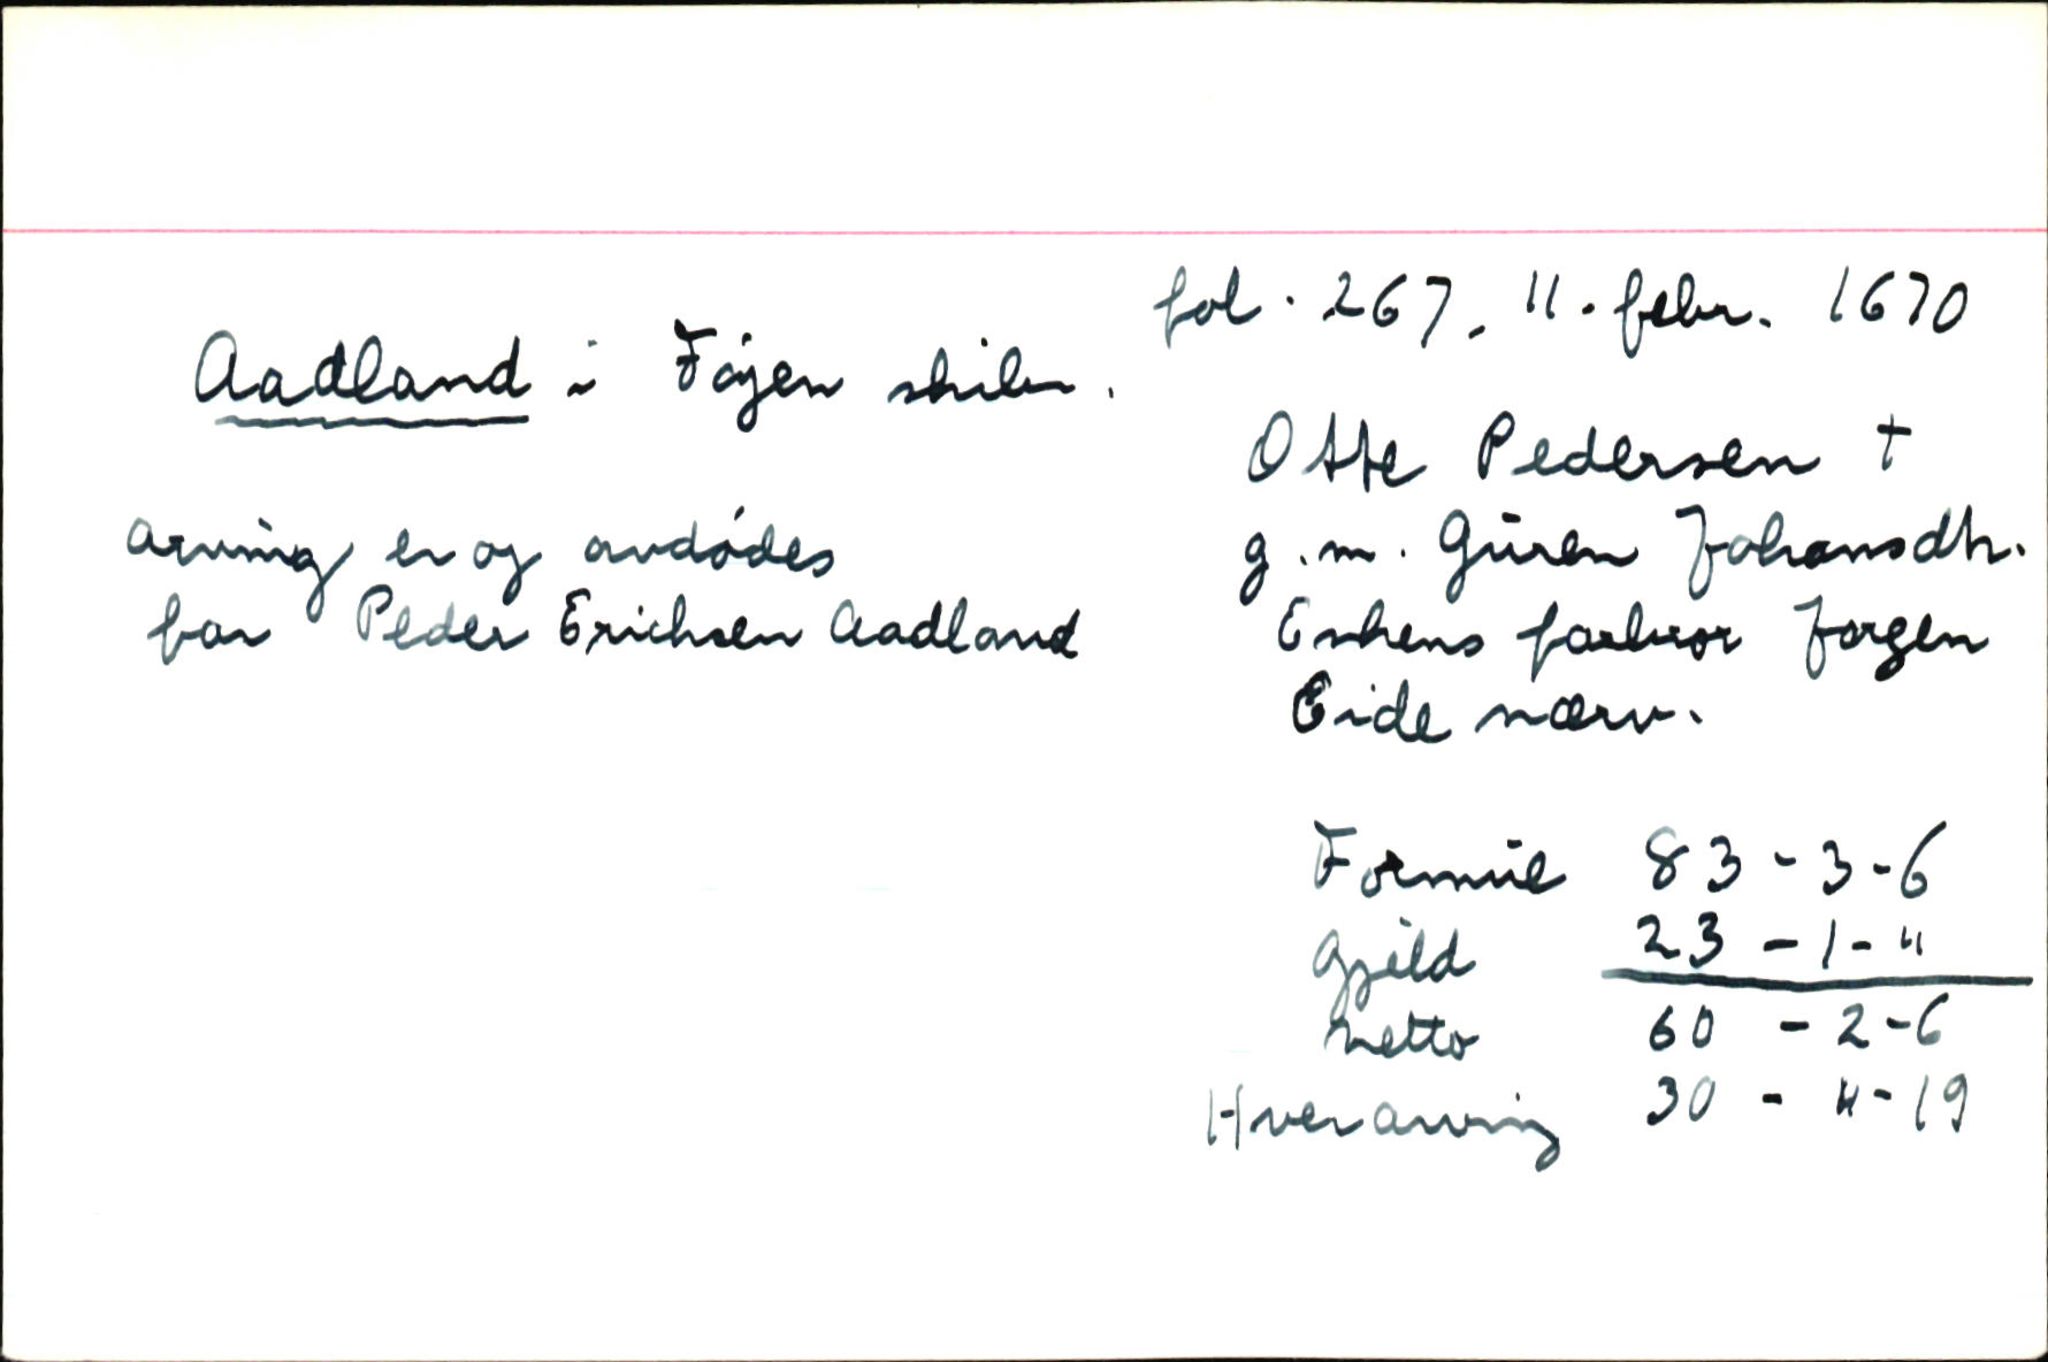 fol. 267. 11. febr. 1670
Aadland i Føyen skibr.
Otte Pedersen †
g.m. Guren Johansdtr.
Enkens farbror Jørgen
Eide nærv.
arving er og avdødes
far Peder Erichsen Aadland
Formue 83 - 3 - 6
Gjeld 23 - 1 - "
Netto 60 - 2 - 6
Hver arving 30 - 4 - 19